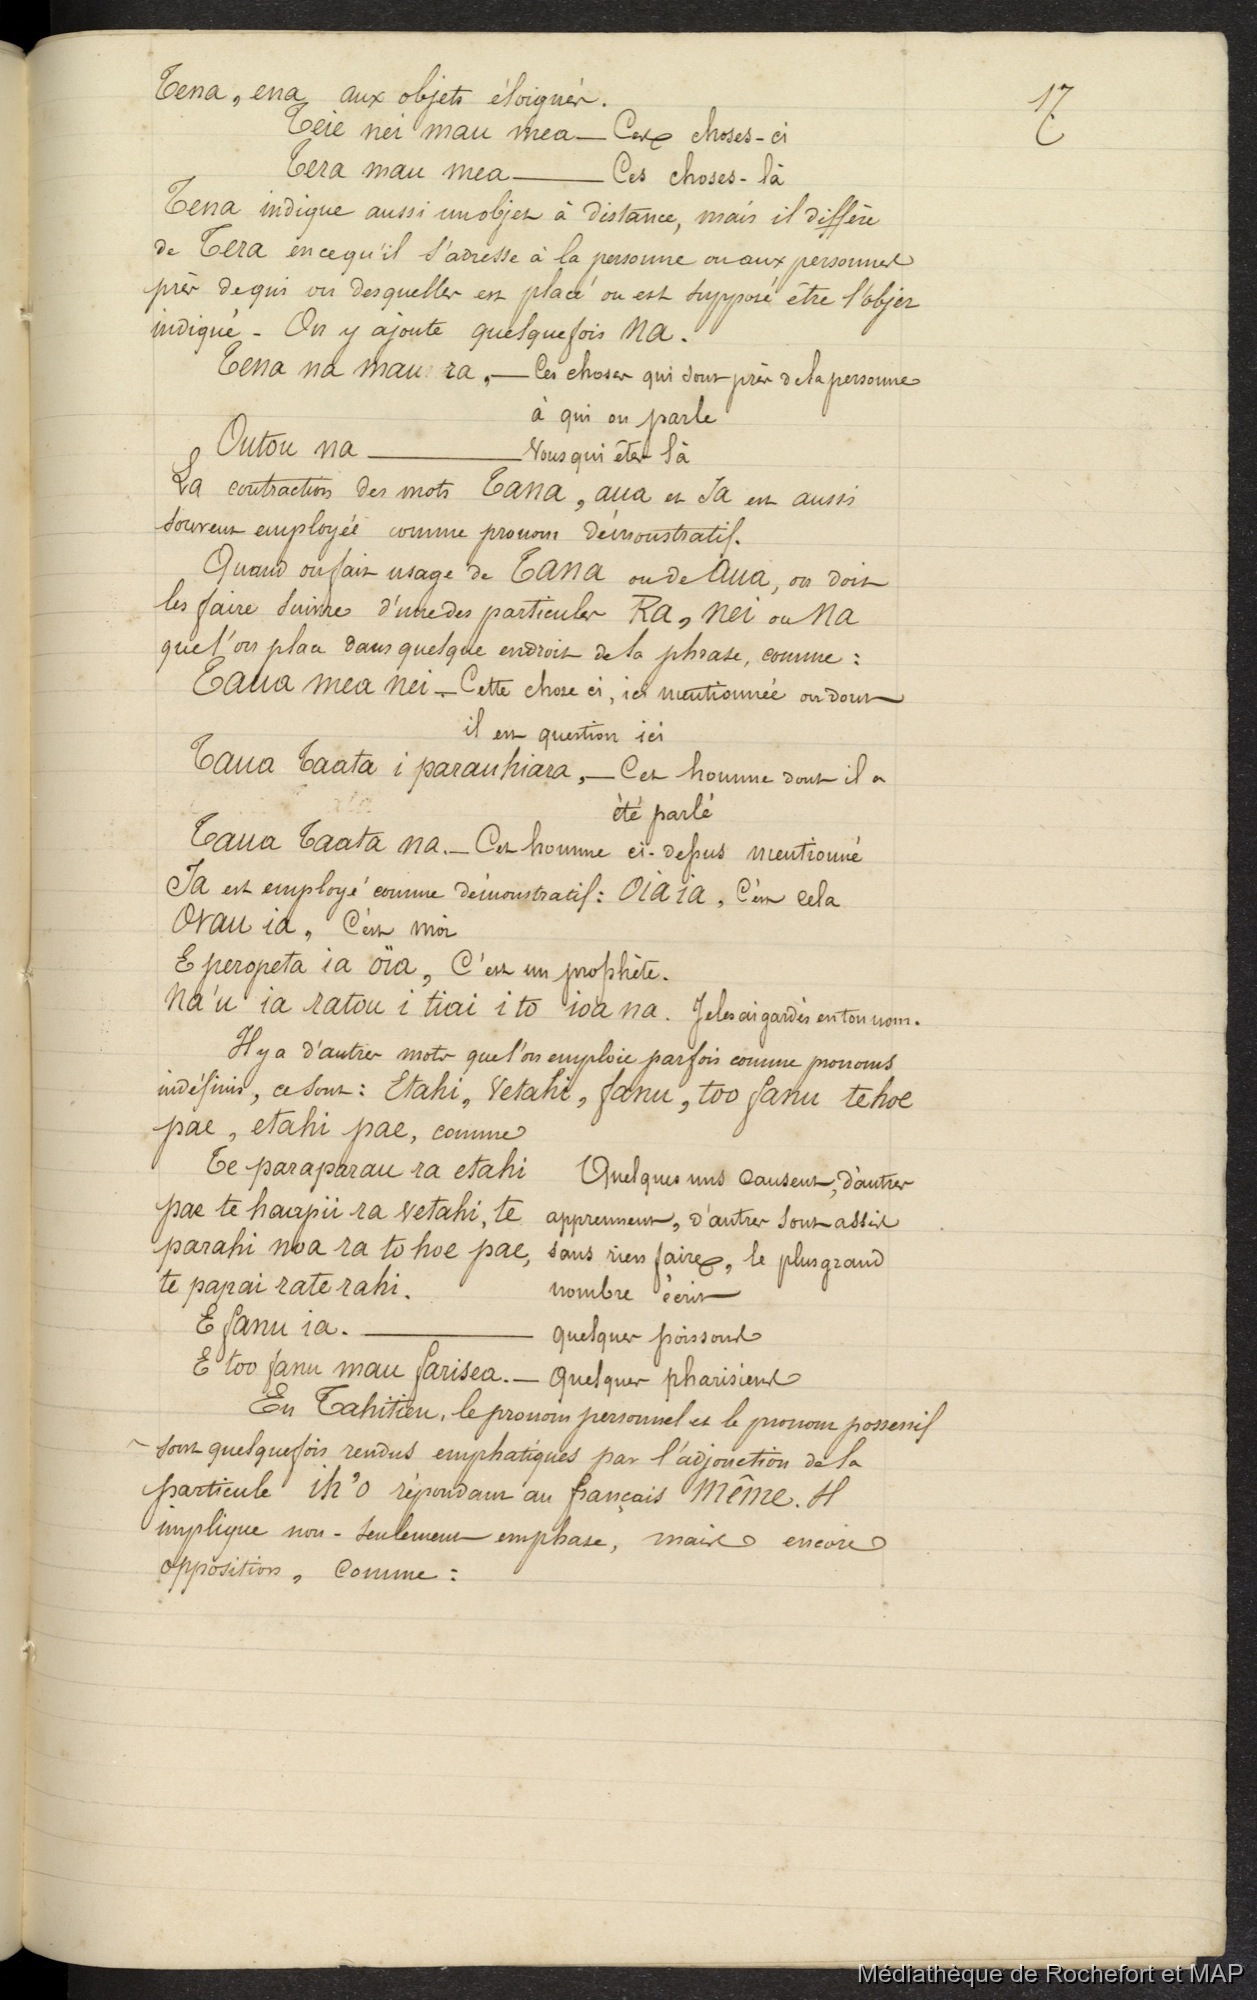 17
Tena, ena, aux objets éloignés.
Teie nei mau mea — Ces choses-ci
Tera mau mea — Ces choses-là
Tena indique aussi un objet à distance, mais il diffère
de Tera en ce qu'il s'adresse à la personne ou aux personnes
près de qui ou desquelles est placé ou est supposé être l'objet
indiqué - On y ajoute quelquefois na.
Tena na mau ra, — Ces choses qui sont près de la personne
à qui on parle
Outou na — Vous qui êtes là
La contraction des mots Tana, aua et Ia est aussi
souvent employée comme pronom démonstratif.
Quand on fait usage de Tana ou de Aua, on doit
les faire suivre d'une des particules Ra, nei ou Na
que l'on place dans quelque endroit de la phrase, comme :
Taua mea nei - Cette chose ci, ici mentionnée ou dont
il est question ici
Taua Taata i parauhiara, — Cet homme dont il a
été parlé
Taua Taata na. — Cet homme ci-dessus mentionné
Ia est employé comme démonstratif : Oia ia, C'est cela
Ovau ia, C'est moi
E peropeta ia oïa, C'est un prophète.
Na'u ia ratou i tiai i to ioa na. Je les ai gardés en ton nom.
Il y a d'autres mots que l'on emploie parfois comme pronoms
indéfinis, ce sont : Etahi, Vetahi, fanu, too fanu tehoe
pae, etahi pae, comme
Te paraparau ra etahi Quelques uns causent, d'autres
pae te haapii ra vetahi, te apprennent, d'autres sont assis
parahi noa ra to hoe pae, sans rien faire, le plus grand
te papai rate rahi. nombre écrit
E fanu ia. — quelques poissons
E too fanu mau farisea. — Quelques pharisiens
En Tahitien, le pronom personnel et le pronom possessif
sont quelquefois rendus emphatiques par l'adjonction de la
particule ih'o répondant au français Même. Il
implique non-seulement emphase, mais encore
opposition, comme :
Médiathèque de Rochefort et MAP